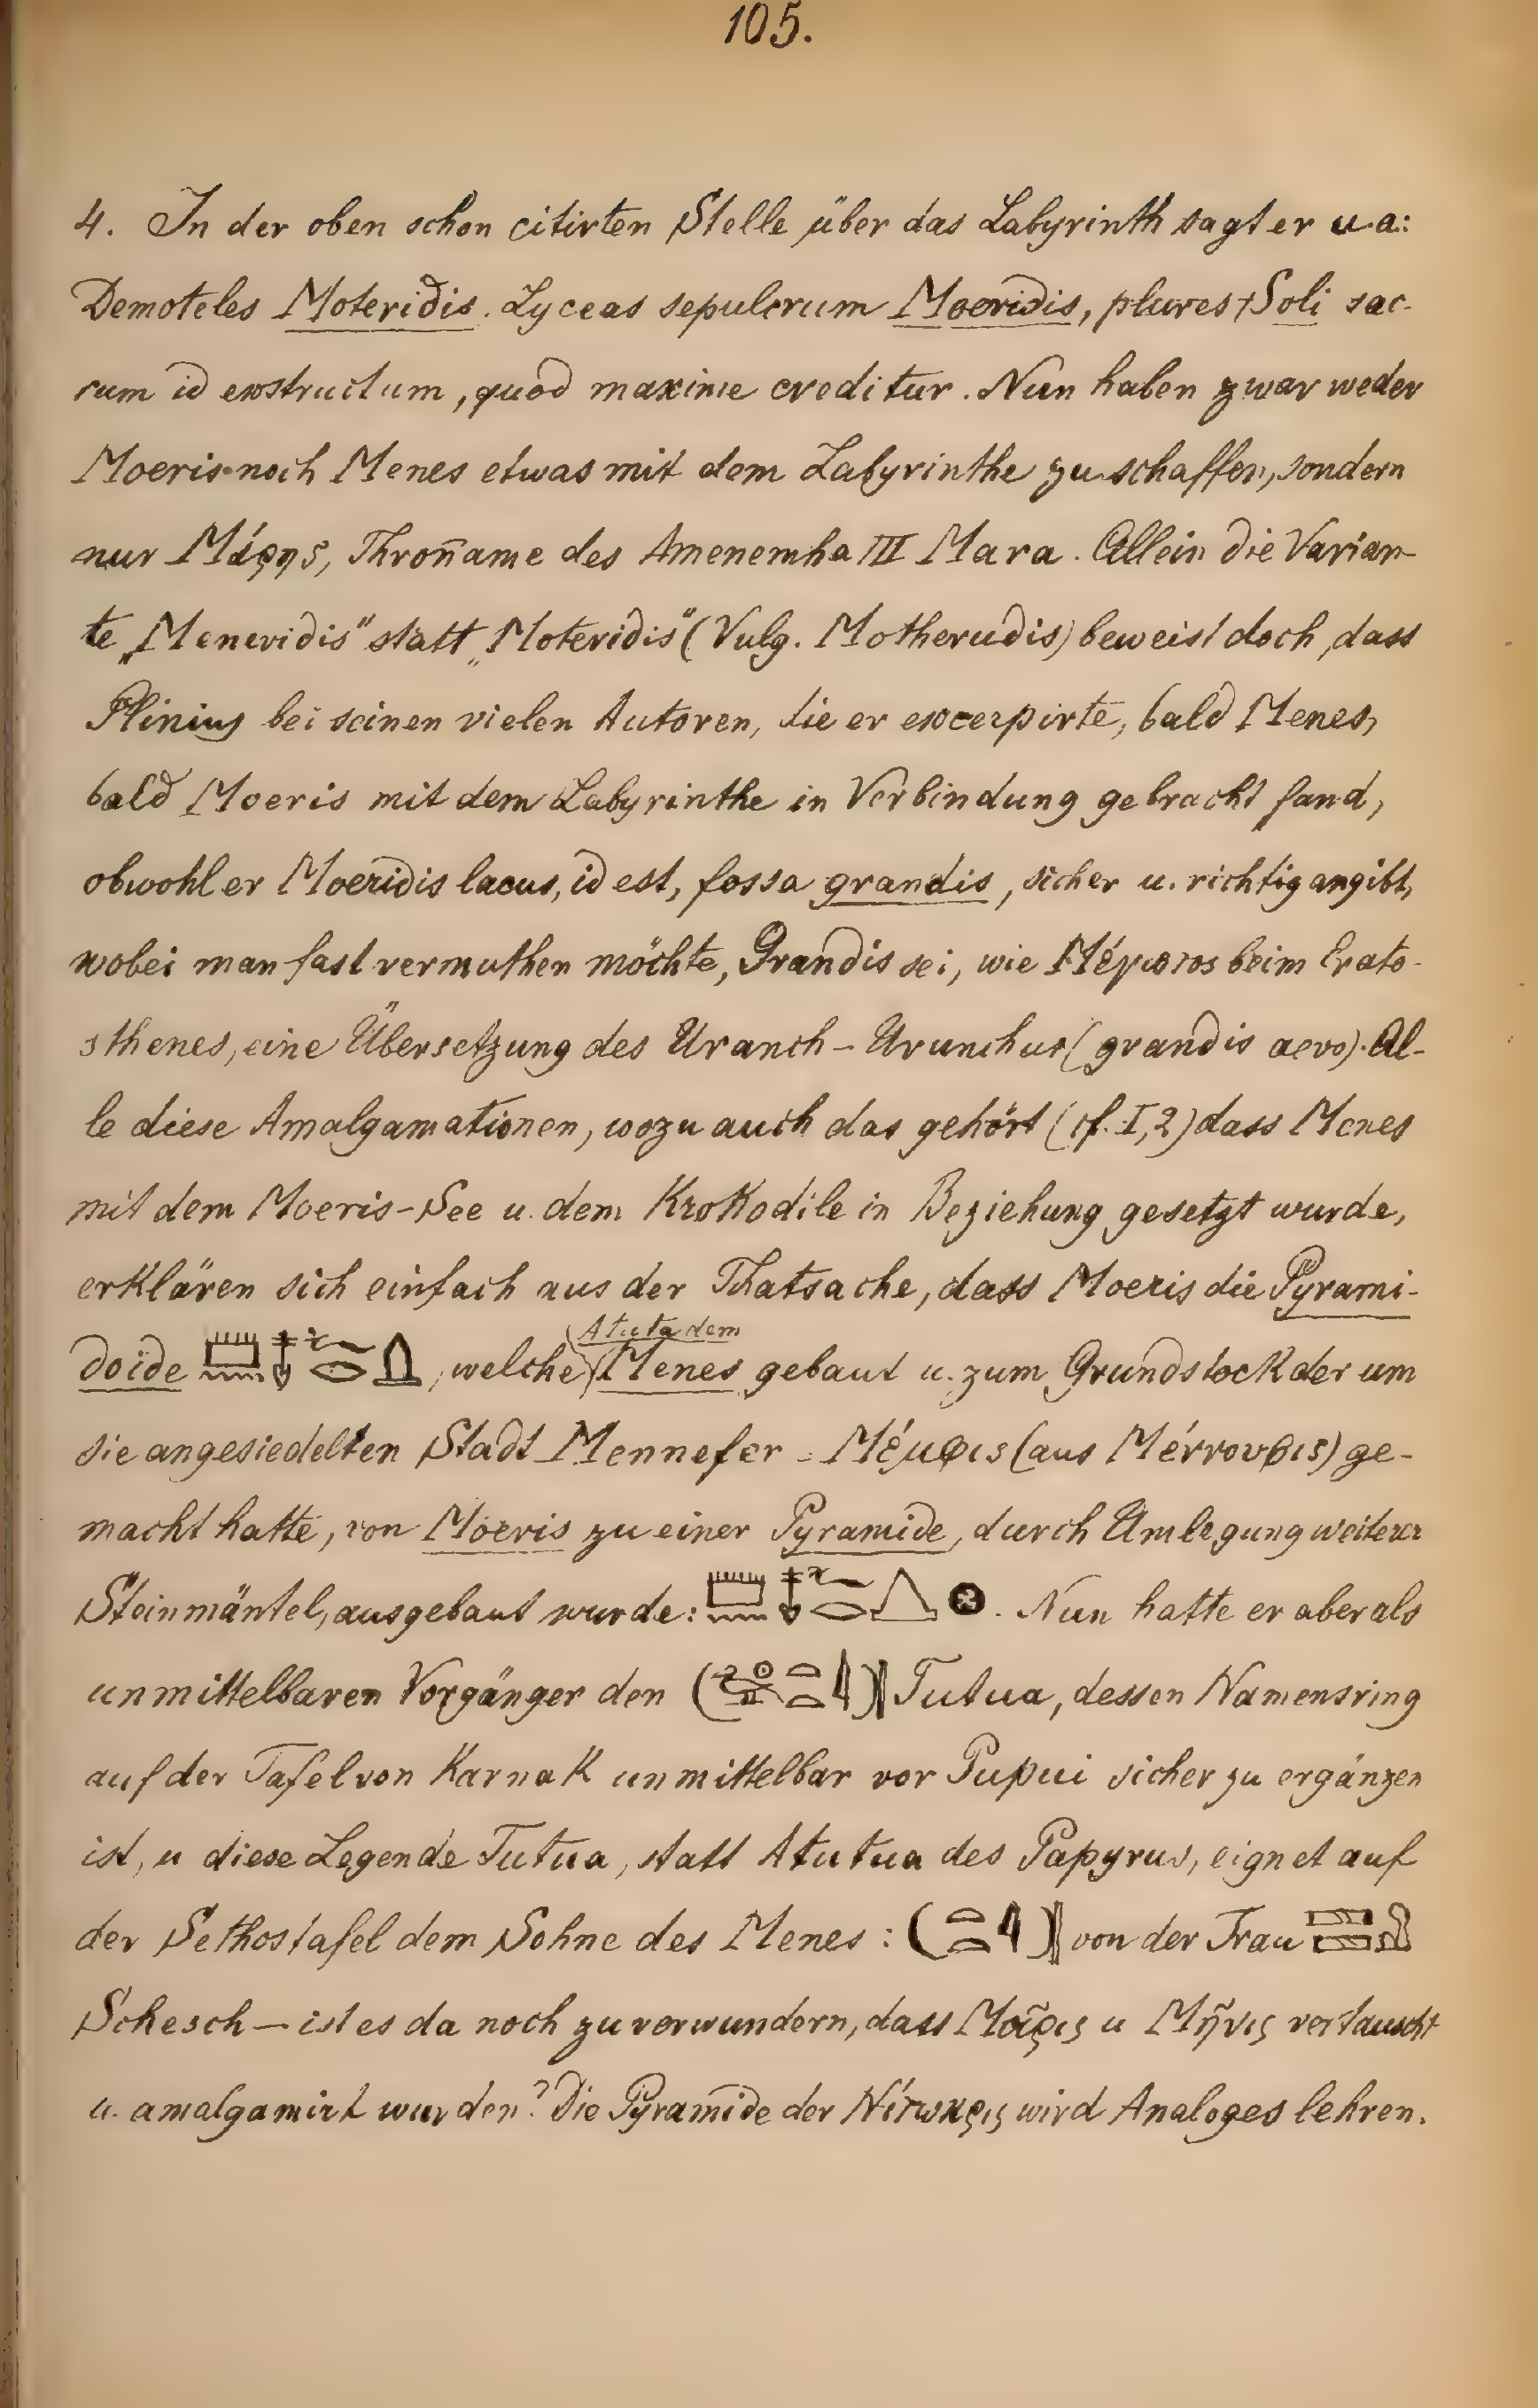 105.
4. In der oben schon citirten Stelle über das Labyrinth sagt er u.a.:
Demoteles Moteridis. Lyceas sepulcrum Moeridis, plures Soli sac-
rum id exstructum, quod maxime creditur. Nun haben zwar weder
Moeris noch Menes etwas mit dem Labyrinthe zu schaffen, sondern
nur Μάρης, Throñame des Amenemha III Mara. Allein die Varian-
te „Meneridis" statt „Moteridis" (Vulg. Motherudis) beweist doch, dass
Plinius bei seinen vielen Autoren, die er excerpirte, bald Menes,
bald Moeris mit dem Labyrinthe in Verbindung gebracht fand,
obwohl er Moeridis lacus, id est, fossa grandis, sicher u. richtig angibt,
wobei man fast vermuthen möchte, Grandis sei, wie beim Erato-
sthenes, eine Übersetzung des Uranch-Urunchus (grandis aevo). Al-
le diese Amalgamationen, wozu auch das gehört (cf. I,2) dass Menes
mit dem Moeris-See u. dem Krokodile in Beziehung gesetzt wurde,
erklären sich einfach aus der Thatsache, dass Moeris die Pyrami-
doide , welche Atuta dem Menes gebaut u. zum Grundstock der um
sie angesiedelten Stadt Mennefer = Μέμφις (aus Μέννουφις) ge-
macht hatte, von Moeris zu einer Pyramide, durch Umlegung weiterer
Steinmäntel, ausgebaut wurde: . Nun hatte er aber als
unmittelbaren Vorgänger den Tutua, dessen Namensring
auf der Tafel von Karnak unmittelbar vor Pupui sicher zu ergänzen
ist, u diese Legende Tutua, statt Atutua des Papyrus, eignet auf
der Sethostafel dem Sohne des Menes: von der Frau
Schesch – ist es da noch zu verwundern, dass Μοῖρις u Μῆνις vertauscht
u. amalgamirt wurden? Die Pyramide der Νίτωκρις wird Analoges lehren.